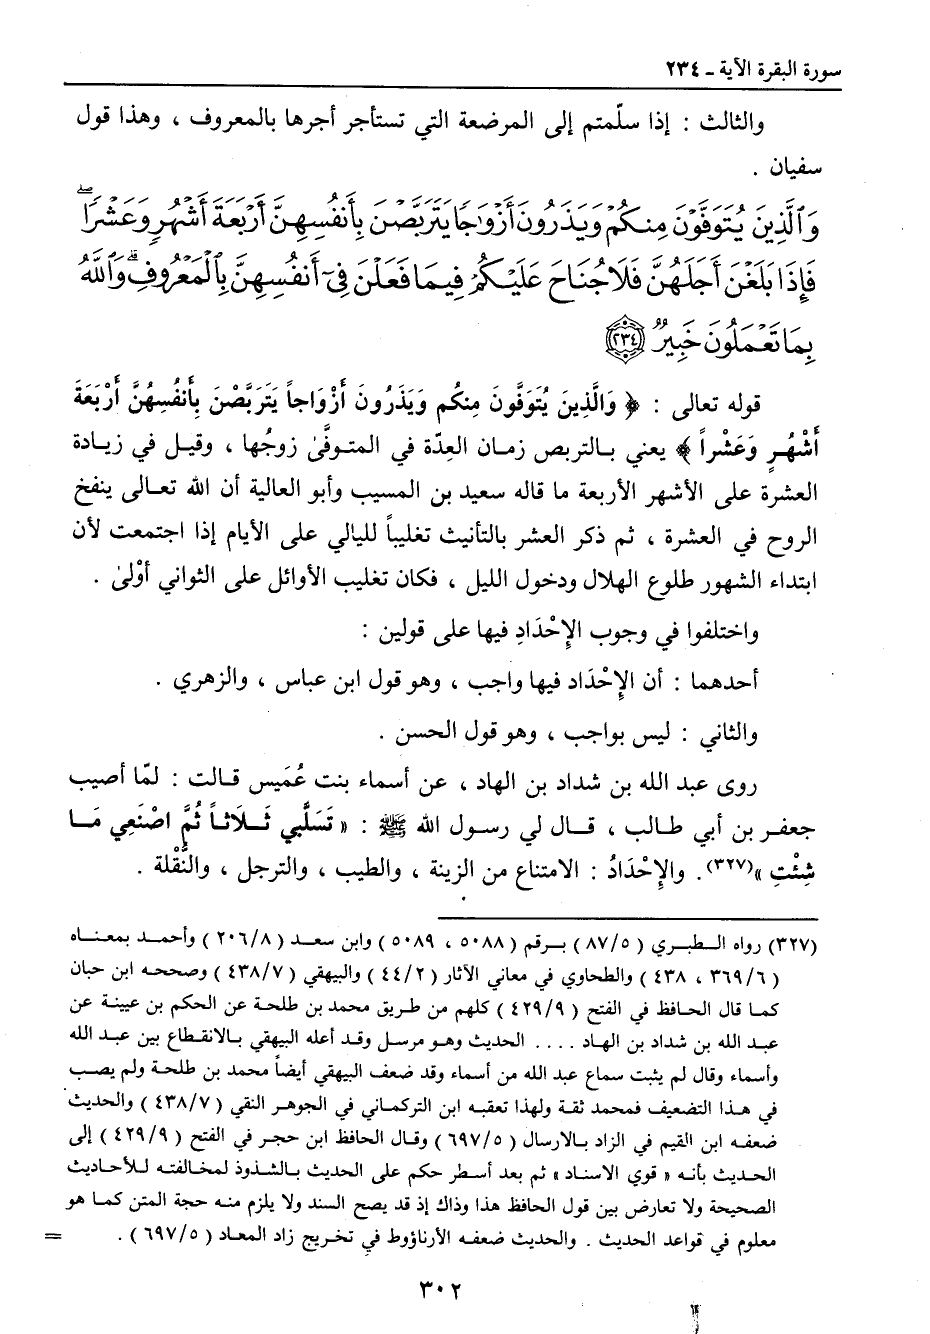 سورة البقرة الآية ـ ٢٣٤
والثالث : إذا سلّمتم إلى المرضعة التي تستأجر أجرها بالمعروف ، وهذا قول
سفيان .
وَٱلَّذِينَ يُتَوَفَّوْنَ مِنكُمْ وَيَذَرُونَ أَزْوَٰجًا يَتَرَبَّصْنَ بِأَنفُسِهِنَّ أَرْبَعَةَ أَشْهُرٍ وَعَشْرًا ۖ
فَإِذَا بَلَغْنَ أَجَلَهُنَّ فَلَا جُنَاحَ عَلَيْكُمْ فِيمَا فَعَلْنَ فِىٓ أَنفُسِهِنَّ بِٱلْمَعْرُوفِ ۗ وَٱللَّهُ
بِمَا تَعْمَلُونَ خَبِيرٌ ٢٣٤
قوله تعالى : ﴿ وَالَّذِينَ يُتَوَفَّونَ مِنكُم وَيَذَرُونَ أَزْوَاجاً يَتَرَبَّصْنَ بِأَنفُسِهُنَّ أَرْبَعَةَ
أَشْهُـرٍ وَعَشْراً ﴾ يعني بـالتربص زمـان العِدّة في المتـوفَّىٰ زوجُها ، وقيـل في زيـادة
العشرة على الأشهر الأربعة ما قاله سعيد بن المسيب وأبو العالية أن الله تعـالى ينفخ
الروح في العشرة ، ثم ذكر العشر بالتأنيث تغليباً لليالي على الأيام إذا اجتمعت لأن
ابتداء الشهور طلوع الهلال ودخول الليل ، فكان تغليب الأوائل على الثواني أوْلىٰ .
واختلفوا في وجوب الإِحْدَادِ فيها على قولين :
أحدهما : أن الإِحْدَاد فيها واجب ، وهو قول ابن عباس ، والزهري .
والثاني : ليس بواجب ، وهو قول الحسن .
روى عبد الله بن شداد بن الهاد ، عن أسماء بنت عُمَيس قـالت : لمّا أصيب
جعفـر بن أبي طـالب ، قـال لي رسـول الله ﷺ : « تَسَلَّبي ثَـلَاثـاً ثُمَّ اصْنَعِي مَـا
شِئْتِ »(٣٢٧). والإِحْدَادُ : الامتناع من الزينة ، والطيب ، والترجل ، والنُّقْلة .
(٣٢٧) رواه الـطبري ( ٥/‏٨٧ ) بـرقم ( ٥٠٨٨ ، ٥٠٨٩ ) وابن سعـد ( ٨/‏٢٠٦ ) وأحمـد بمعنـاه
( ٦/‏٣٦٩ ، ٤٣٨ ) والطحاوي في معاني الآثار ( ٢/‏٤٤ ) والبيهقي ( ٧/‏٤٣٨ ) وصححـه ابن حبان
كمـا قال الحـافظ في الفتح ( ٩/‏٤٢٩ ) كلهم من طـريق محمـد بن طلحة عن الحكم بن عيينة عن
عبـد الله بن شداد بن الهـاد .... الحديث وهـو مرسل وقـد أعله البيهقي بـالانقـطاع بين عبـد الله
وأسماء وقال لم يثبت سماع عبد الله من أسماء وقد ضعف البيهقي أيضاً محمد بن طلحة ولم يصب
في هـذا التضعيف فمحمد ثقـة ولهذا تعقبـه ابن التركمـاني في الجوهـر النقي ( ٧/‏٤٣٨ ) والحديث
ضعفـه ابن القيم في الزاد بـالارسال ( ٥/‏٦٩٧ ) وقـال الحافظ ابن حجـر في الفتح ( ٩/‏٤٢٩ ) إلى
الحـديث بأنـه « قوي الاسنـاد » ثم بعد أسـطر حكم على الحديث بـالشذوذ لمخـالفتـه لـلأحاديث
الصحيحة ولا تعارض بين قول الحافظ هذا وذاك إذ قد يصح السند ولا يلزم منـه حجة المتن كمـا هو
معلوم في قواعد الحديث . والحديث ضعفه الأرناؤوط في تخريج زاد المعـاد ( ٥/‏٦٩٧ ) . =
٣٠٢